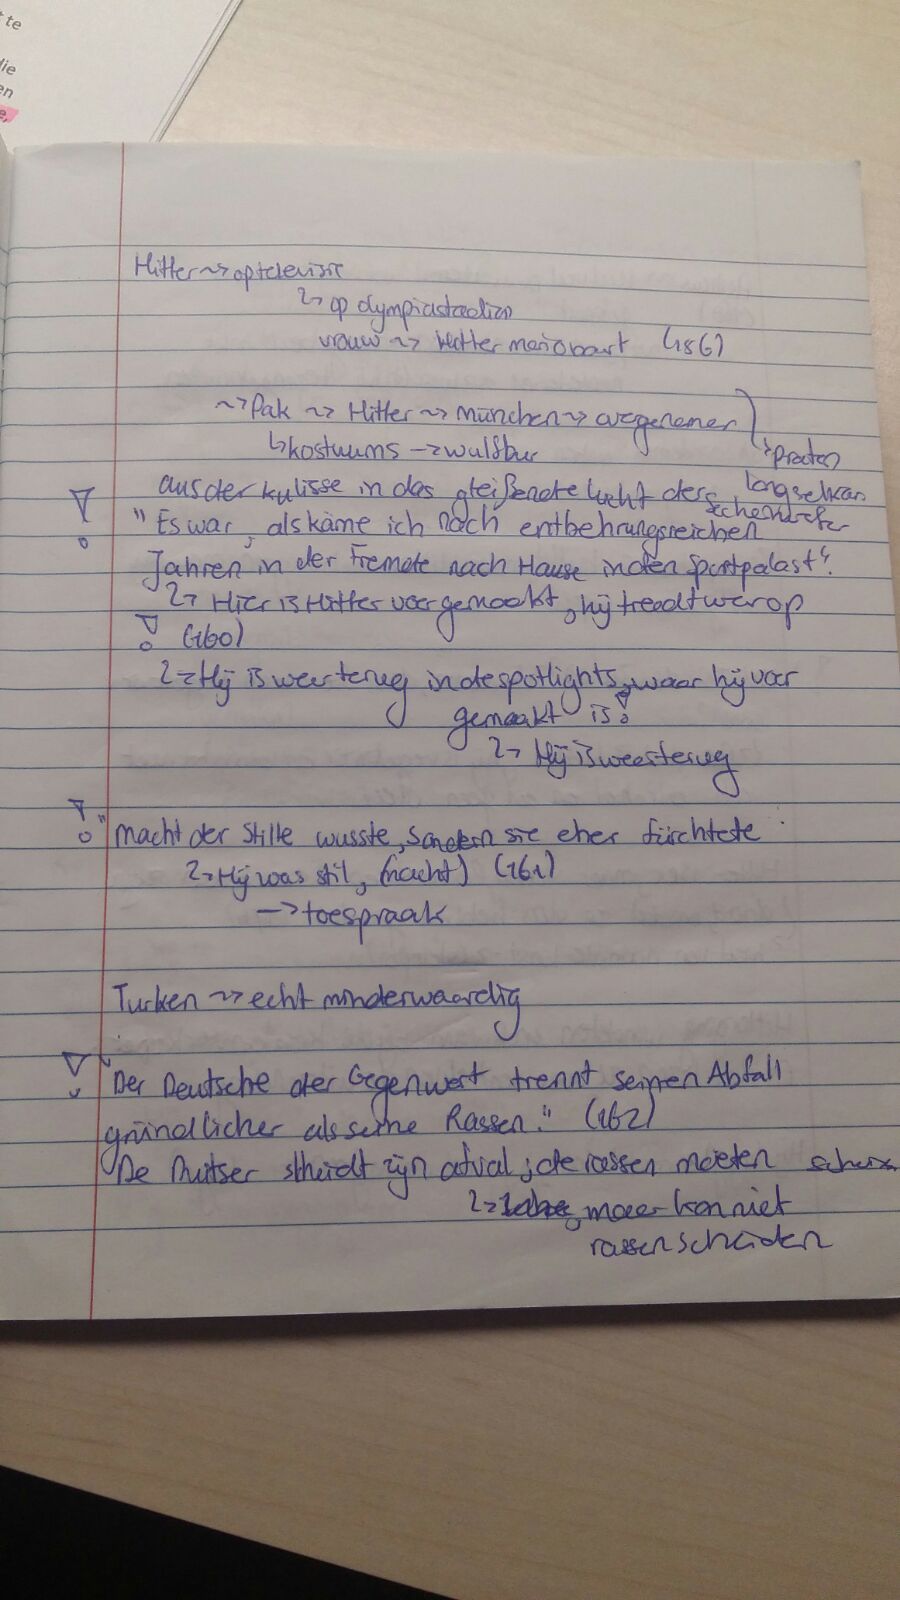 te
die
en
e,
Hitler ~> op televisie
↳ op olympiastadion
vrouw ~> Hitler (186)
~> Pak ~> Hitler ~> München ~>
↳ kostuums -> praten
aus der kulisse in das gleißende Licht der
! "Es war, als käme ich nach entbehrungsreichen
Jahren in der Fremde nach Hause in den Sportpalast".
↳ Hier is Hitler voor gemaakt, hij treedt weer op
! (160)
↳ Hij is weer terug in de spotlights, waar hij voor
gemaakt is!
↳ Hij is weer terug
! "macht der Stille wusste, sondern sie eher fürchtete
↳ Hij was stil, (macht) (161)
-> toespraak
Turken ~> echt minderwaardig
! "Der Deutsche der Gegenwart trennt seinen Abfall
gründlicher als seine Rassen." (162)
De Duitser scheidt zijn afval, de rassen moeten
↳ maar kan niet
rassen scheiden